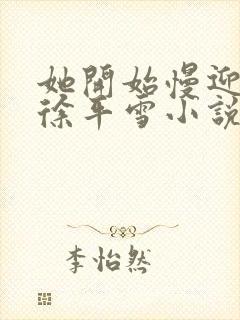 她開始慢迎
徐平雪小說
李怡然